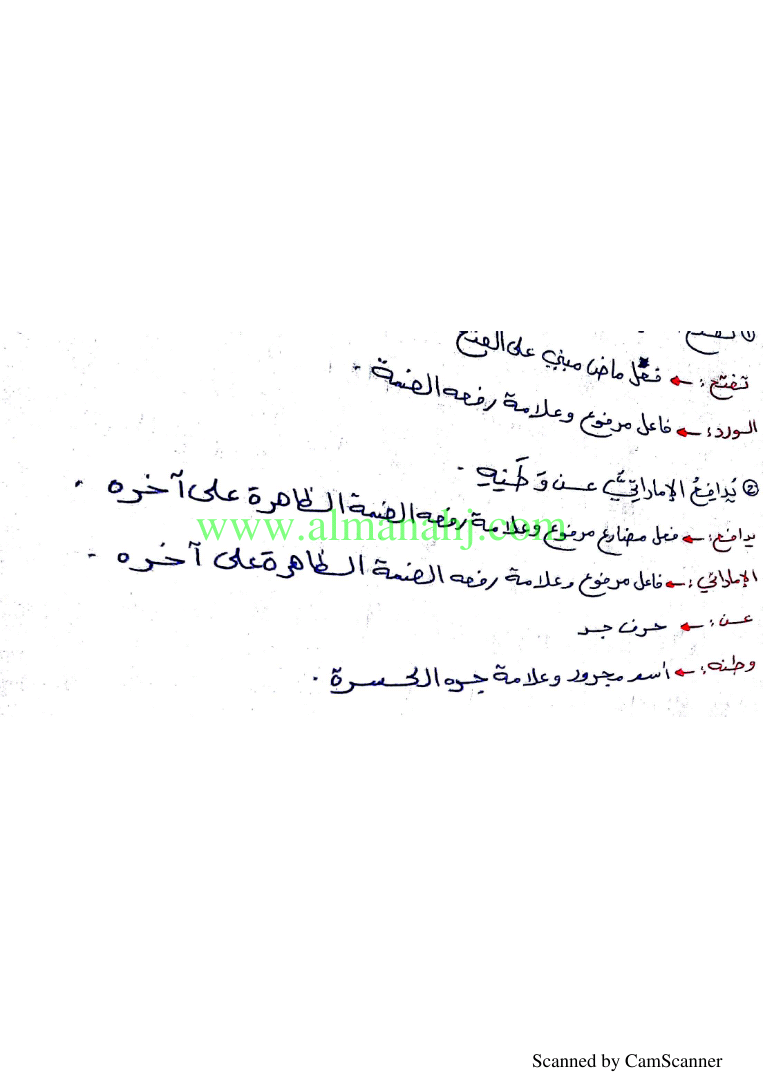 ① تفتح
تفتح: ← فعل ماض مبني على الفتح
الورد: ← فاعل مرفوع وعلامة رفعه الضمة .
② يُدافِعُ الإماراتيُّ عن وَطَنِهِ .
يدافع: ← فعل مضارع مرفوع وعلامة رفعه الضمة الظاهرة على آخره .
www.almanahj.com
الإماراتي: ← فاعل مرفوع وعلامة رفعه الضمة الظاهرة على آخره .
عن: ← حرف جر
وطنه: ← اسم مجرور وعلامة جره الكسرة .
Scanned by CamScanner